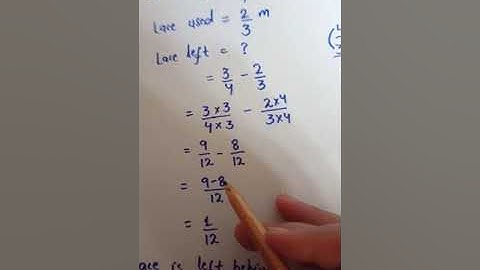 Lace used = 2/3 m
Lace left = ?
= 3/4 - 2/3
= 3×3/4×3 - 2×4/3×4
= 9/12 - 8/12
= 9-8/12
= 1/12
is left